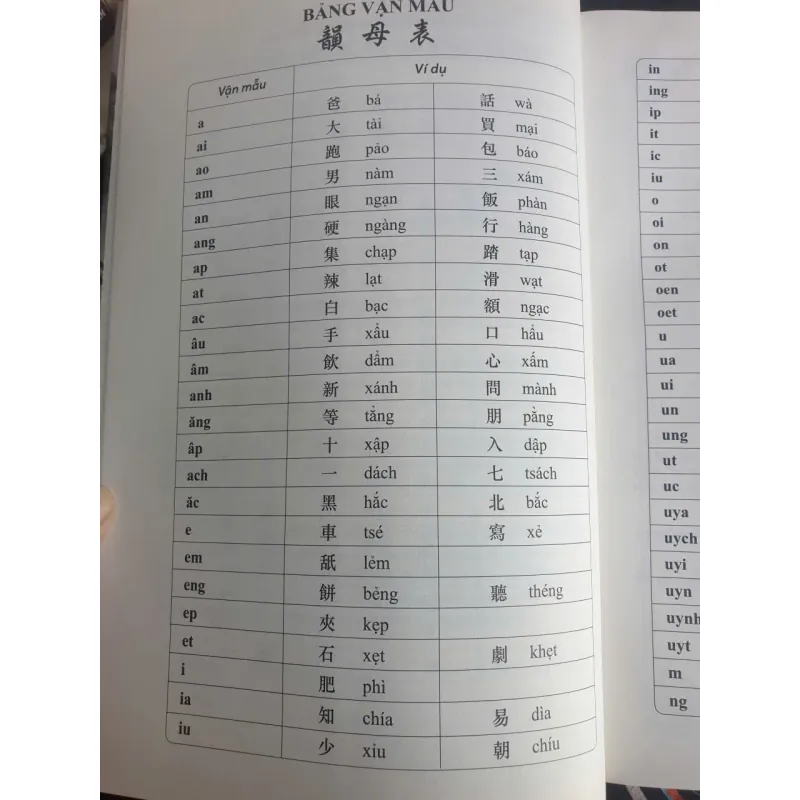 BẢNG VẬN MẪU
韻母表
Vận mẫu Ví dụ
a 爸 bá 話 wà
ai 大 tài 買 mại
ao 跑 pảo 包 báo
am 男 nàm 三 xám
an 眼 ngạn 飯 phàn
ang 硬 ngàng 行 hàng
ap 集 chạp 踏 tạp
at 辣 lạt 滑 wạt
ac 白 bạc 額 ngạc
âu 手 xẩu 口 hẩu
âm 飲 dẩm 心 xấm
anh 新 xánh 問 mành
ăng 等 tẳng 朋 pằng
âp 十 xập 入 dập
ach 一 dách 七 tsách
ăc 黑 hắc 北 bắc
e 車 tsé 寫 xẻ
em 舐 lẻm
eng 餅 bẻng 聽 théng
ep 夾 kẹp
et 石 xẹt 劇 khẹt
i 肥 phì
ia 知 chía 易 dìa
iu 少 xỉu 朝 chíu
in
ing
ip
it
ic
iu
o
oi
on
ot
oen
oet
u
ua
ui
un
ung
ut
uc
uya
uych
uyi
uyn
uynh
uyt
m
ng